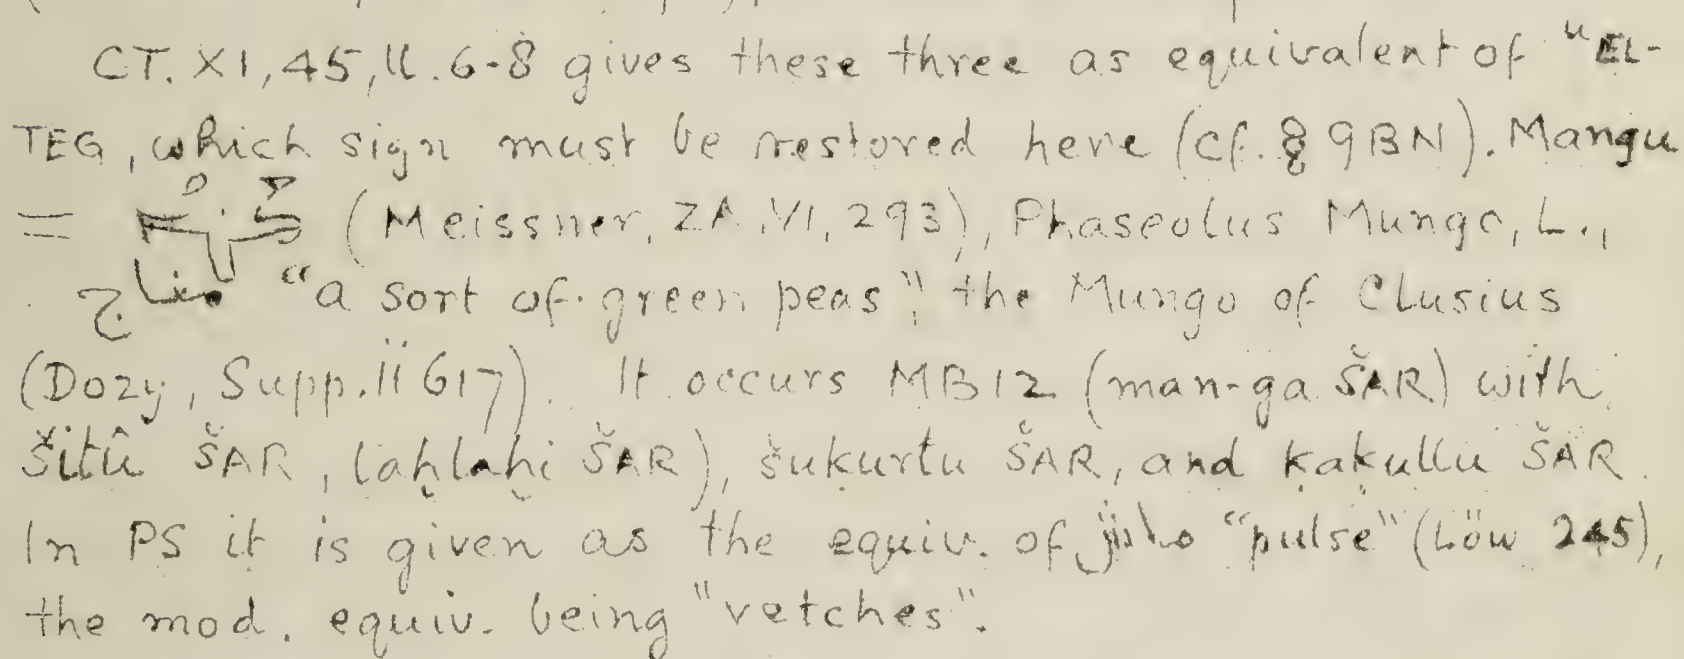 CT. XI, 45, ll. 6-8 gives these three as equivalent of ᵘEL-
TEG, which sign must be restored here (cf. § 9BN). Mangu
= (Meissner, ZA. VI, 293), Phaseolus Mungo, L.,
"a sort of green peas", the Mungo of Clusius
(Dozy, Supp. ii 617). It occurs MB 12 (man-ga ŠAR) with
šitû ŠAR, laḫlaḫi ŠAR), šuḳurtu ŠAR, and ḳaḳullu ŠAR.
In PS it is given as the equiv. of "pulse" (Löw 245),
the mod. equiv. being "vetches".